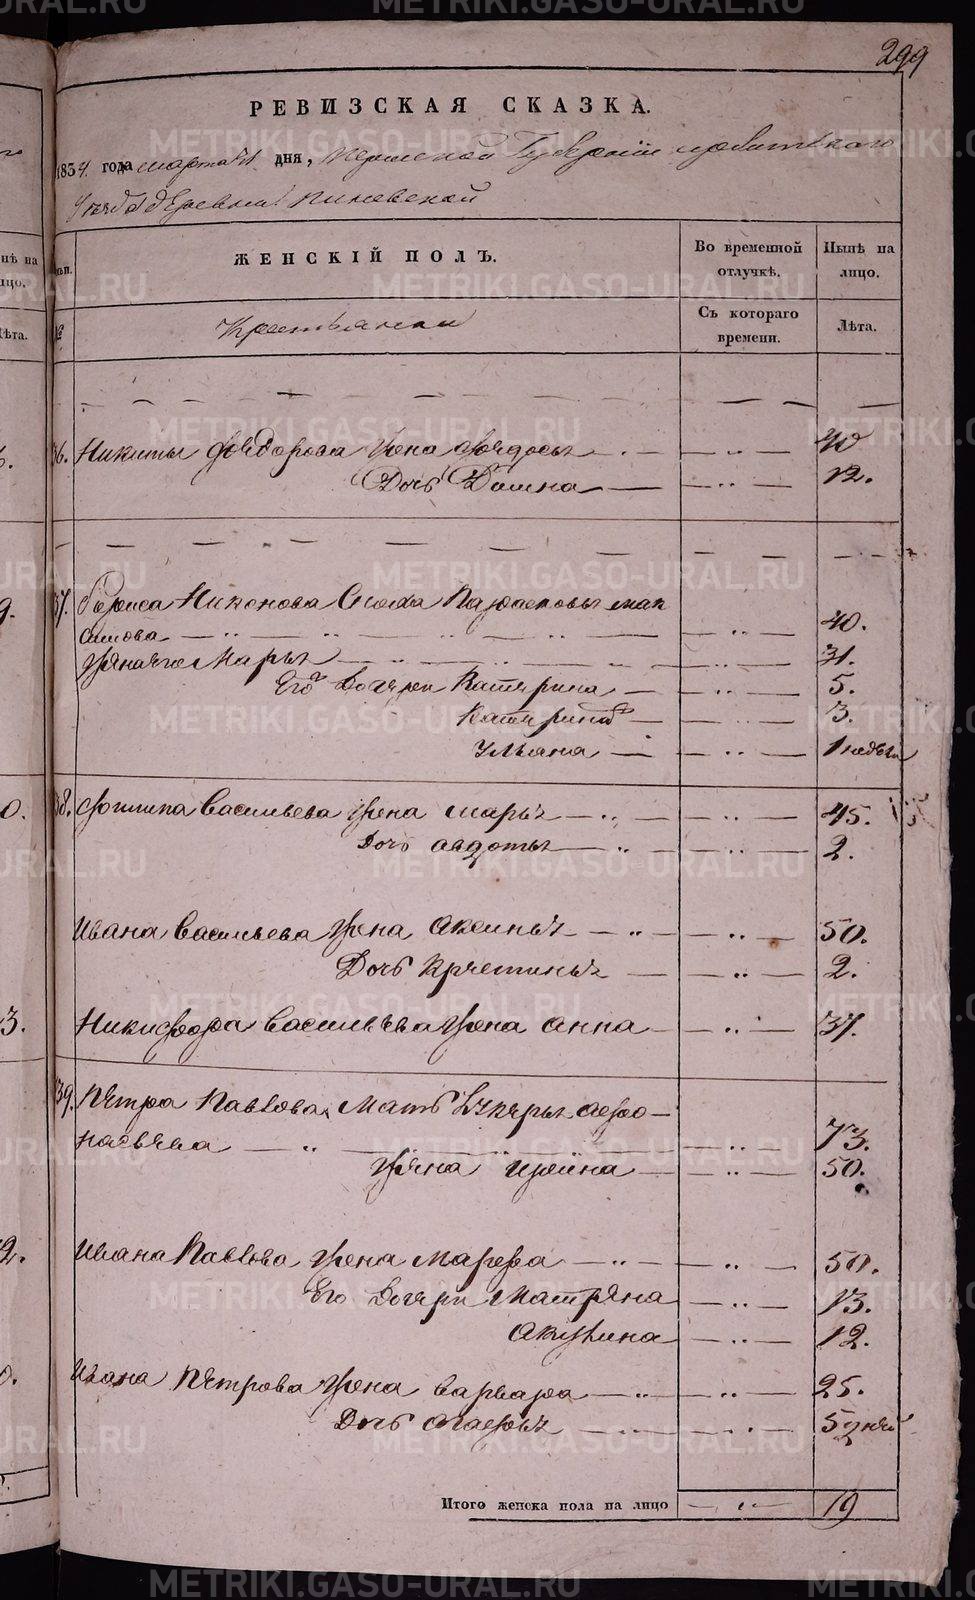 299
РЕВИЗСКАЯ СКАЗКА.
1834 года марта дня, Пермской Губернии Ирбитскаго
Уезда деревни
ЖЕНСКІЙ ПОЛЪ.
Во временной отлучкѣ.
Нынѣ на лицо.
№
Крестьянски
Съ котораго времени.
Лѣта.
36. Никиты Федорова жена Федосья 40
Дочь Домна 12.
37. Бориса Никонова Сноха мак
симова 40.
Марья 31.
Его Дочери Катерина 5.
Катерина 3.
Ульяна 1 недели
38. Филипа Васильева жена Марья 45.
Дочь Авдотья 2.
Ивана Васильева жена Аксинья 50.
Дочь Крестинья 2.
Никифора Васильева жена Анна 37.
39. Петра Павлова Мать Лукерья Афо-
насьева 73.
жена Ирина 50.
Ивана Павлова жена Марфа 50.
Его Дочери Матрена 13.
Акулина 12.
Ивана Петрова жена Варвара 25.
Дочь Агафья 5 дней
Итого женска пола на лицо 19
METRIKI.GASO-URAL.RU